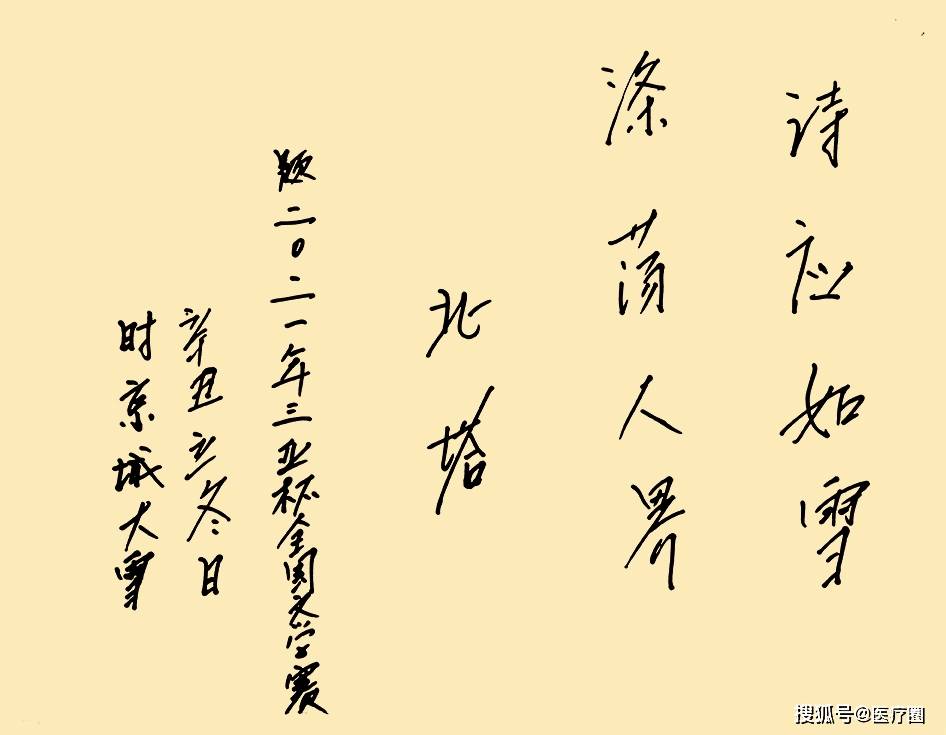 诗应如雪
涤荡人界
北塔
题二〇二一年三亚杯全国文学赛
辛丑立冬日
时京城大雪
搜狐号@医疗圈